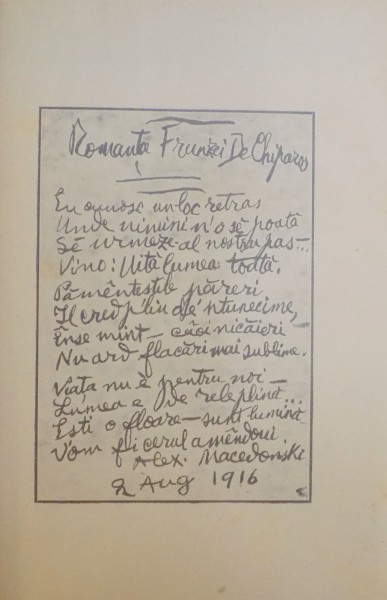 Romanța Frunzei De Chiparos
Eu cunosc un loc retras
Unde nimini n'o sĕ poată
Sĕ urmeze al nostru pas—...
Vino: Uită lumea toată.
Pămêntestele păreri
Îl cred plin de 'ntunecime,
Ênse mint — căci nicăieri
Nu ard flacări mai sublime.
Viața nu ĕ pentru noi —
Lumea e de rele plină...
Esti o floare — sunt lumină
Vom fi cerul amêndoui.
Alex. Macedonski
2 Aug 1916